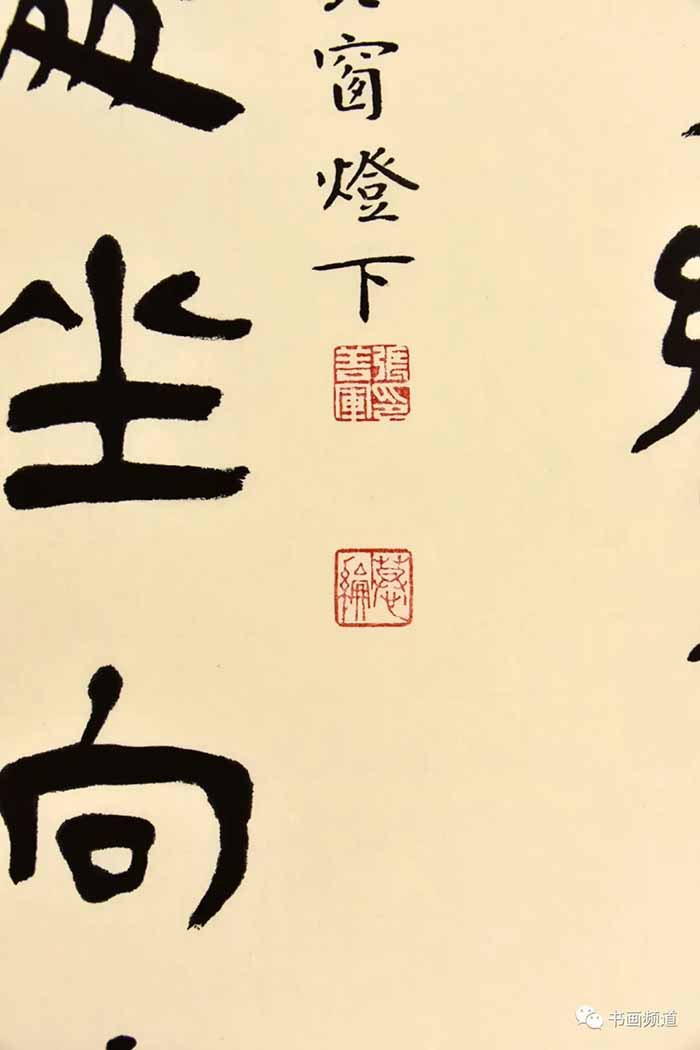 窗燈下
張善軍印
坐向
书画频道